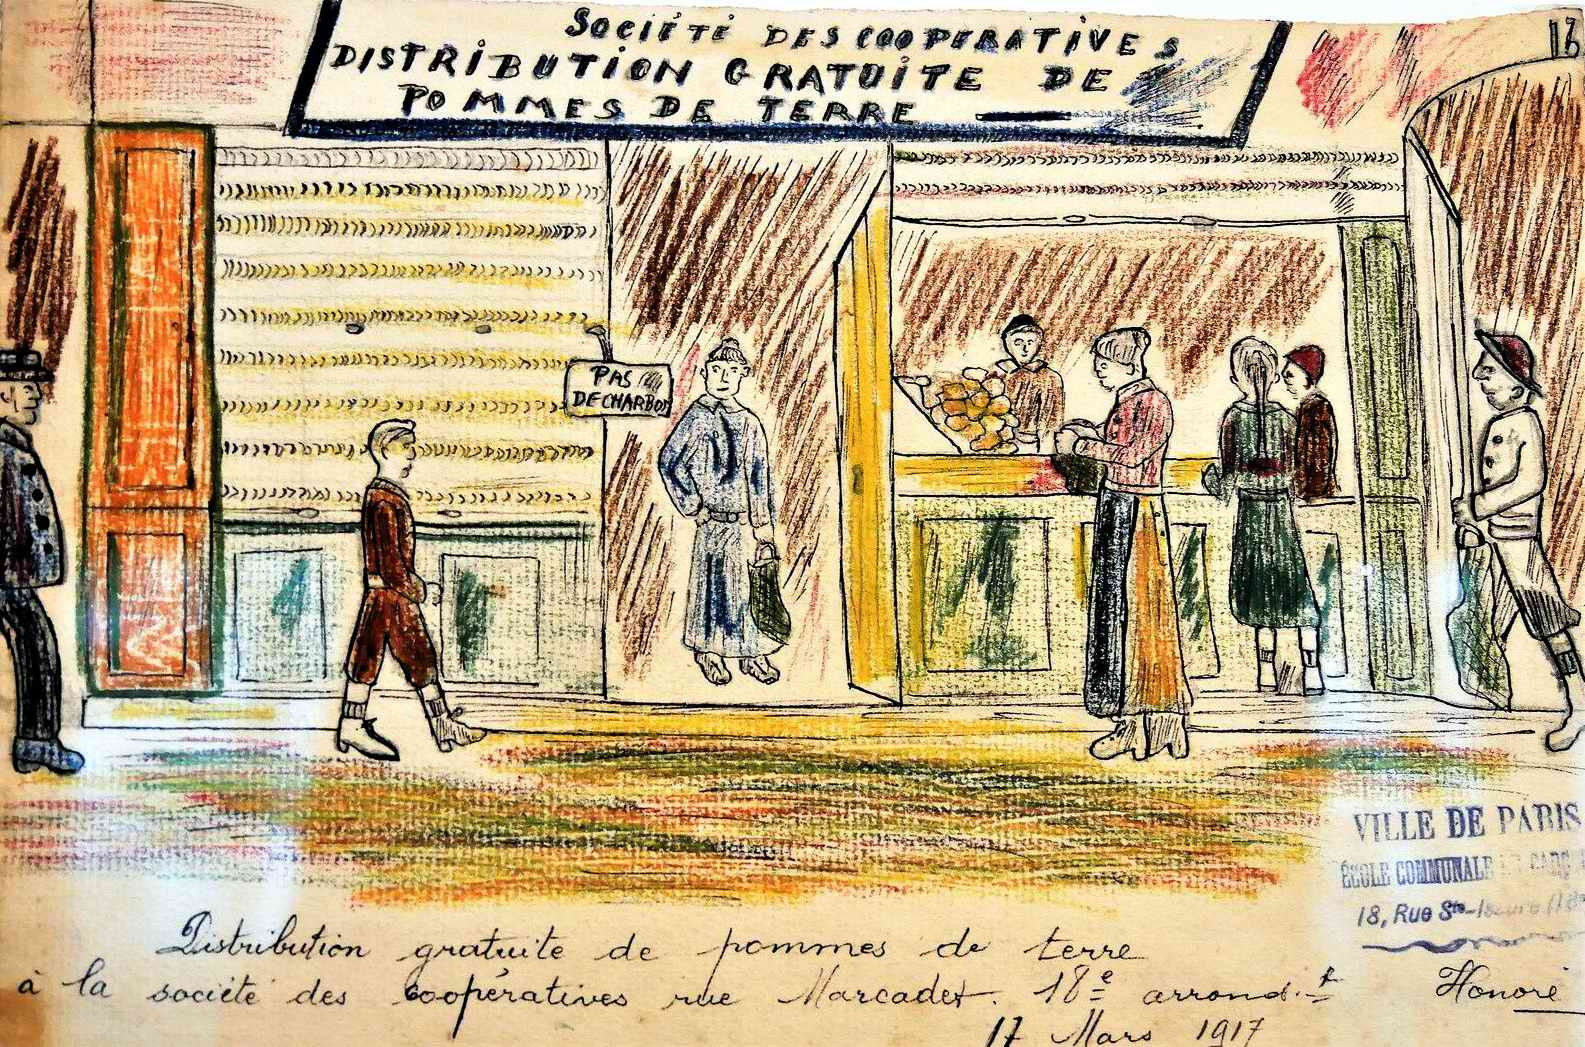 SOCIÉTÉ DES COOPERATIVES
DISTRIBUTION GRATUITE DE
POMMES DE TERRE
13
PAS
DE CHARBON
VILLE DE PARIS
ÉCOLE COMMUNALE DE GARÇ
18, Rue Ste-Isaure (18e
Distribution gratuite de pommes de terre
à la société des coopératives rue Marcadet. 18e arrond.t
Honoré
17 Mars 1917